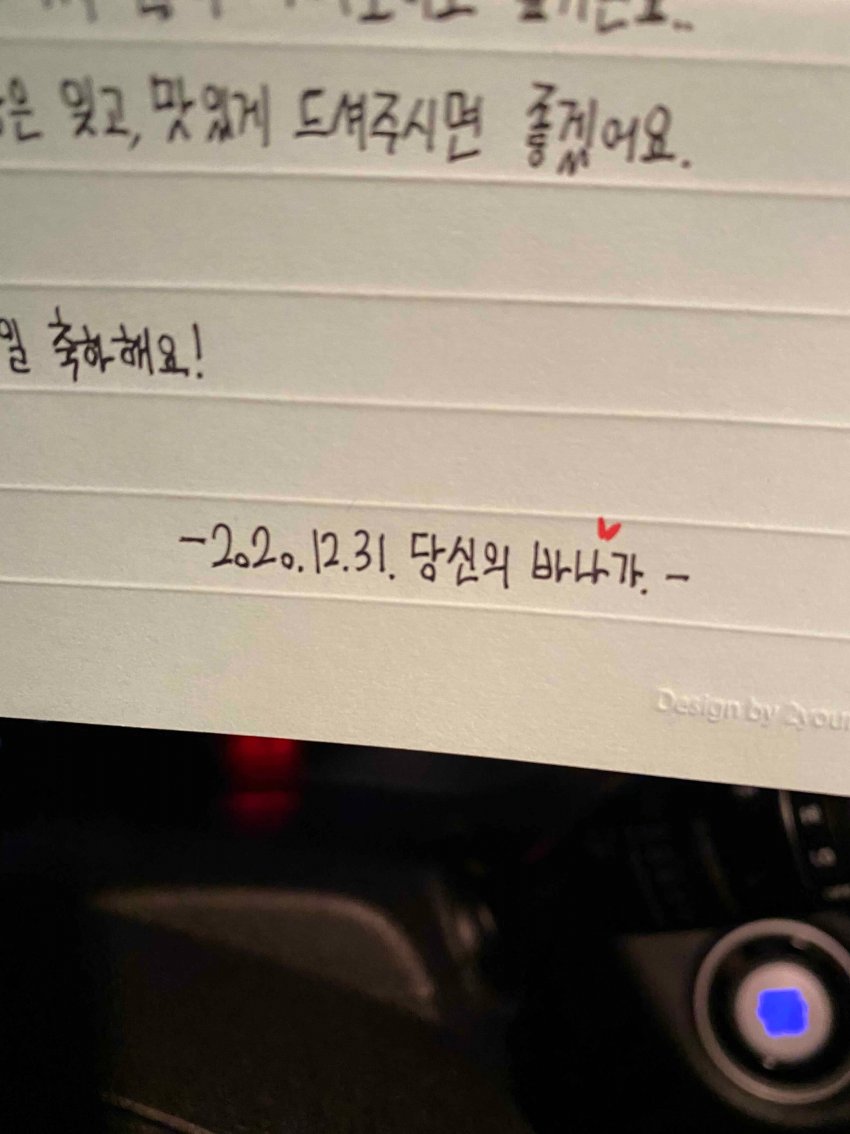 은 잊고, 맛있게 드셔주시면 좋겠어요.
일 축하해요!
-2020.12.31. 당신의 바나가. -
Design by 2your